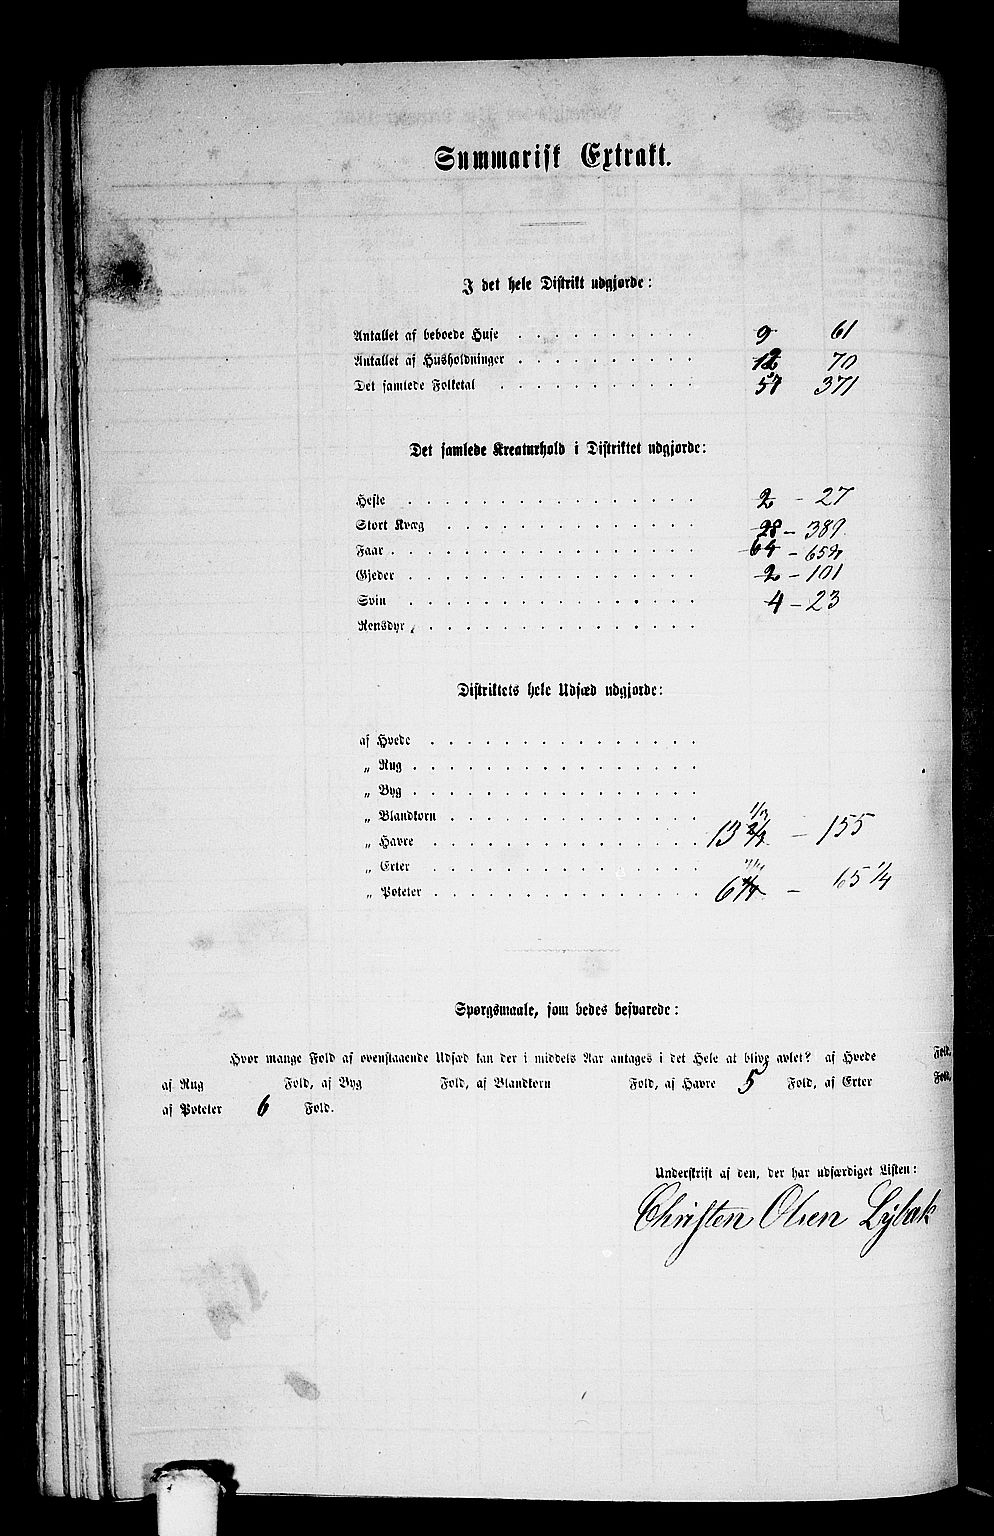 Summarisk Extrakt.
I det hele Distrikt udgjorde:
Antallet af beboede Huse . . . . . . . . . . 9 61
Antallet af Husholdninger . . . . . . . . . . 12 70
Det samlede Folketal . . . . . . . . . . . 57 371
Det samlede Kreaturhold i Distriktet udgjorde:
Heste . . . . . . . . . . . . . . . 2 - 27
Stort Kvæg . . . . . . . . . . . . . 28 - 389
Faar . . . . . . . . . . . . . . . . 64 -
Gjeder . . . . . . . . . . . . . . . 2 - 101
Svin . . . . . . . . . . . . . . . 4 - 23
Rensdyr . . . . . . . . . . . . . .
Distriktets hele Udsæd udgjorde:
af Hvede . . . . . . . . . . . . . .
„ Rug . . . . . . . . . . . . . . .
„ Byg . . . . . . . . . . . . . . .
„ Blandkorn . . . . . . . . . . . . .
„ Havre . . . . . . . . . . . . . . 13 - 155
„ Erter . . . . . . . . . . . . . .
„ Poteter . . . . . . . . . . . . . . 6 - 65 1/4
Spørgsmaale, som bedes besvarede:
Hvor mange Fold af ovenstaaende Udsæd kan der i middels Aar antages i det Hele at blive avlet? af Hvede Fold,
af Rug Fold, af Byg Fold, af Blandkorn Fold, af Havre 5 Fold, af Erter Fold,
af Poteter 6 Fold.
Underskrift af den, der har udfærdiget Listen:
Christen Olsen Lybæk